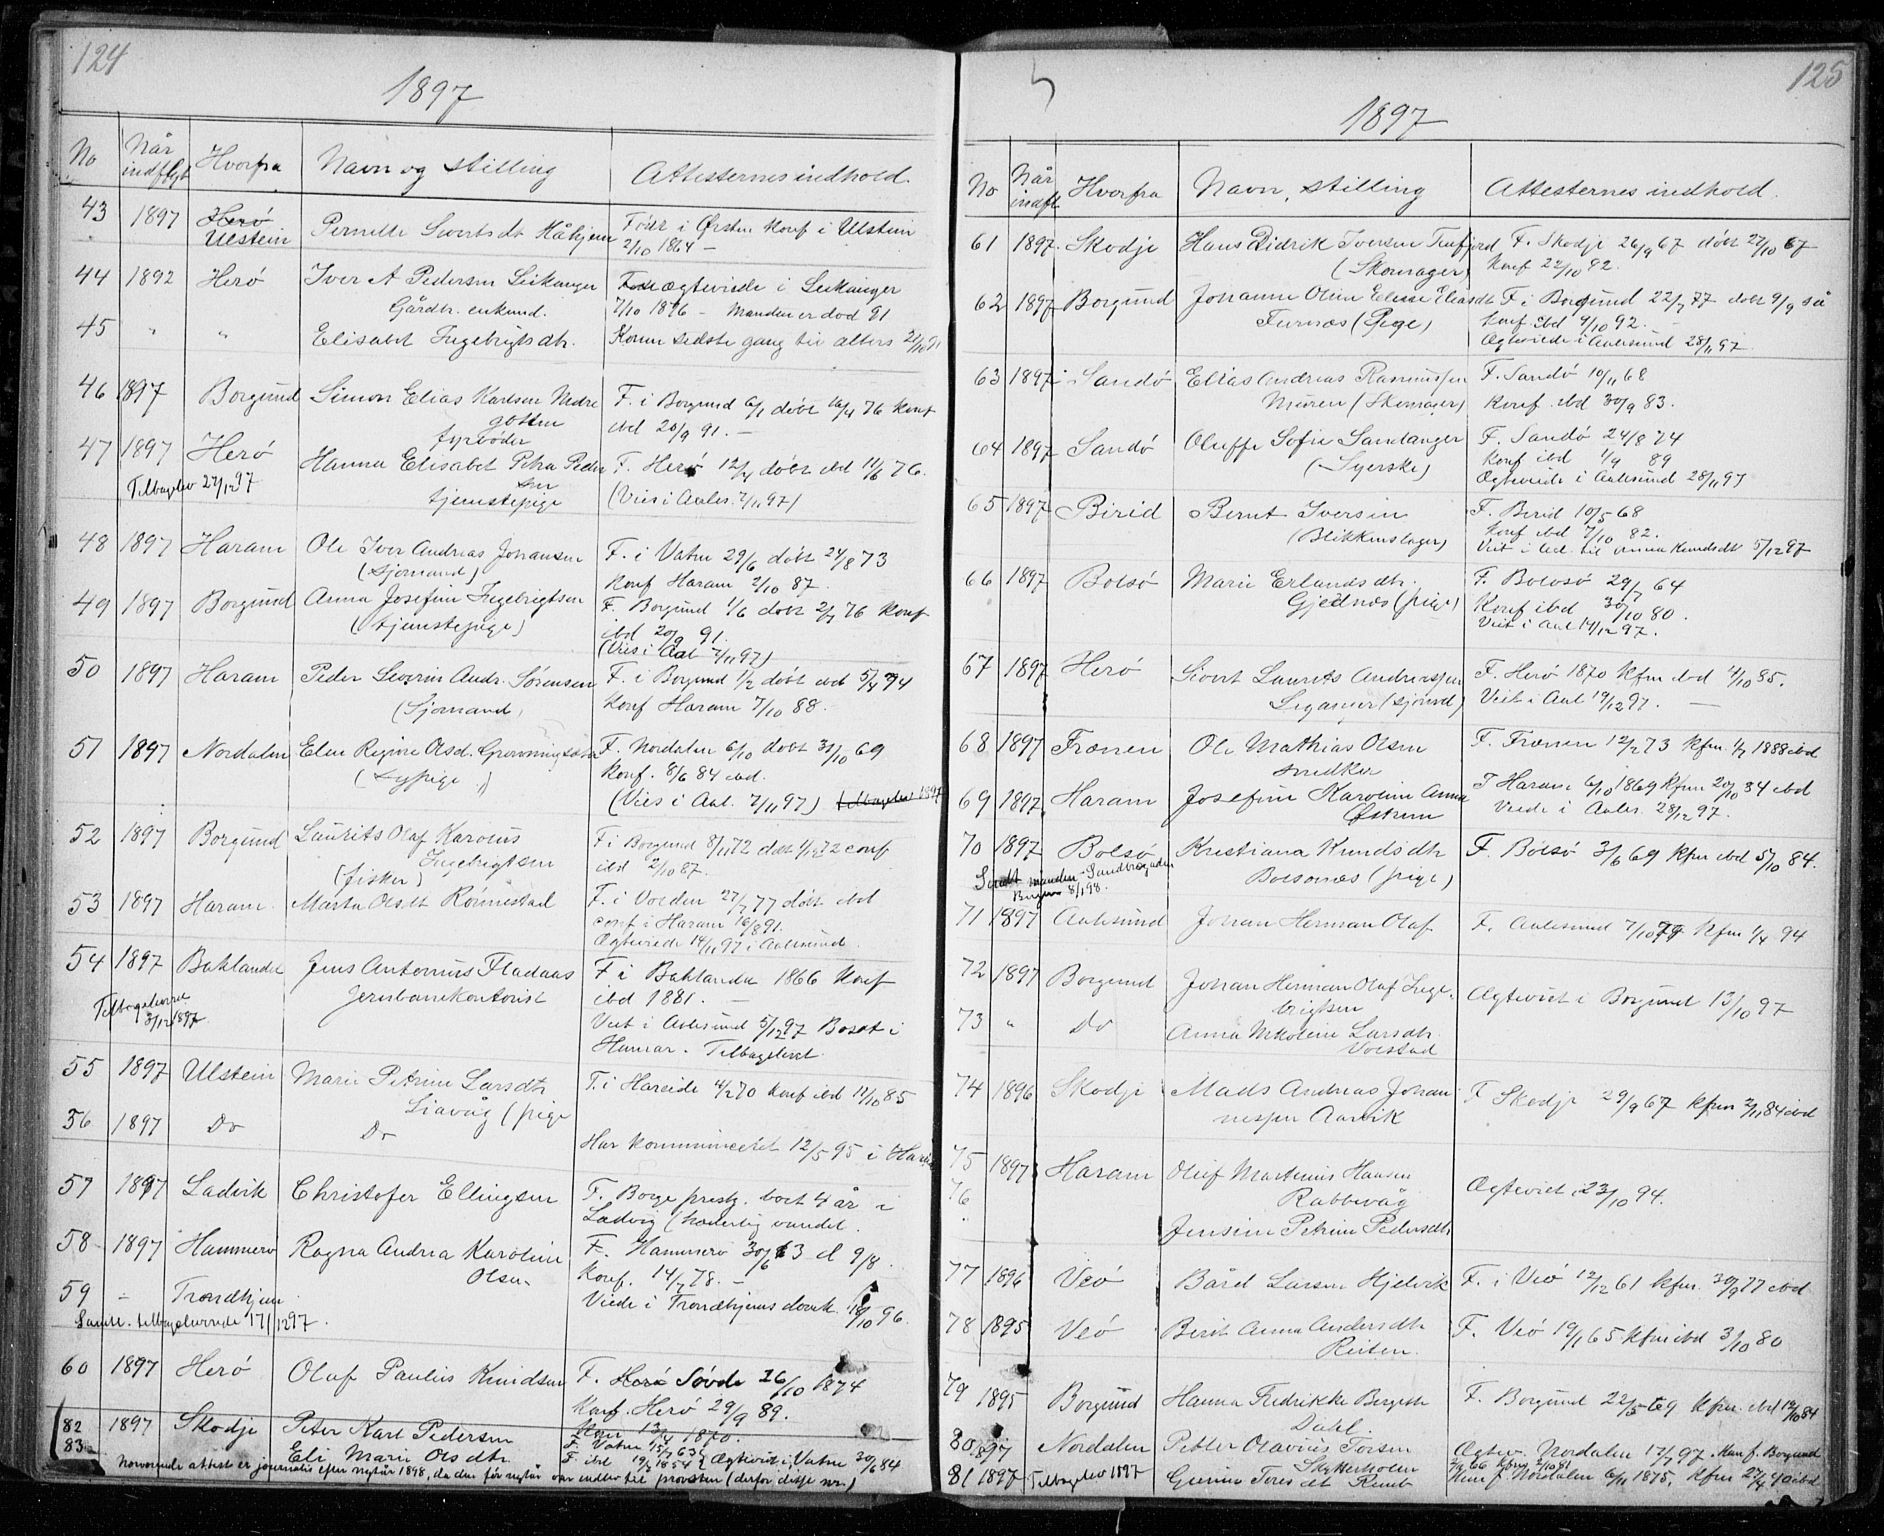 124
1897
No Når indflyt Hvorfra Navn og stilling Attesternes indhold.
43 1897 Herø Ulstein Pernille Sivertsdt Håhjem Født i Ørsten konf i Ulstein
2/10 1864 –
44 1892 Herø Iver A Pedersen Leikanger Ægteviede i Leikanger
Gårdbr. enkemd. 7/10 1876 – Manden er død 91
45 " " Elisabet Ingebrigtsdtr. Konen sidste gang til alters
46 1897 Borgund Simon Elias Karlsen Medre F. i Borgund 6/1 døbt 16/4 76 konf
gotten ibd 20/9 91. –
fyrbøder
47 1897 Herø Hanna Elisabet Petra Peder F. Herø 12/4 døbt ibd 11/6 76.
Tilbagelev 27/12 97 sen
tjenstepige (Vies i Aales. 7/11 97)
48 1897 Haram Ole Iver Andreas Johansen F. i Vatne 29/6 døbt 24/8 73
(sjømand) konf Haram 2/10 87.
49 1897 Borgund Anna Josefine Ingebrigtsen F. Borgund 1/6 døbt 2/7 76 konf
(tjenstepige) ibd 20/9 91.
(Vies i Aal 7/11 97)
50 1897 Haram Peder Severin Andr. Sørensen F. i Borgund 1/2 døbt ibd 5/4 74
(Sjømand) Konf Haram 7/10 88.
51 1897 Nordalen Elen Regine Olsd. F. Nordalen 6/10 døbt 31/10 69
(sypige) konf. 8/6 84 ibd.
(Vies i Aal. 7/11 97) tilbagelev 1897
52 1897 Borgund Laurits Olaf Karolus F i Borgund 8/11 72 døbt 1/12 72 conf
Ingebrigtsen
(fisker) ibd 2/10 87.
53 1897 Haram Marta Olsdt Rønnestad F. i Volden 27/7 77 døbt ibd
conf i Haram 16/8 91.
Ægteviede 14/11 97 i Aalesund.
54 1897 Baklandet Jens Antonius Fladaas F i Baklandet 1866 konf
Jernbanekontorist ibd 1881. –
Tilbageleveret 3/12 1897. Viet i Aalesund 5/12 97 Bosat i
Hamar. Tilbagelevet
55 1897 Ulstein Marie Petrine Larsdtr F. i Hareide 4/2 70 konf ibd 11/10 85
Liavåg (pige
56 1897 Do Do
Har kommuniceret 12/5 95 i
57 1897 Ladvik Christofer Ellingsen F. Borge prestg. boet 4 år i
Ladvig (hæderlig vandel.
58 1897 Hammerø Ragna Andrea Karoline F. Hammerø 30/6 63 d 9/8
Olsen Konf. 14/7 78. –
59 – Trondhjem. Viede i Trondhjems domk. 18/10 96.
Samtl. tilbageleverede 17/12 97.
60 1897 Herø Olaf Paulus Knudsen F. Herø Søvde 26/10 1874
Konf. Herø 29/9 89.
82 1897 Skodje Peter Karl Pedersen
83 Eli Marie Olsdtr Ægteviet i Vatne 30/6 84
Norværende attester er journalis efter nytår 1898, da de før nytår var indlev til provsten (derfor disse nr.)
125
1897
No Når indfl. Hvorfra Navn, stilling Attesternes indhold.
61 1897 Skodje Hans Didrik Iversen Tenfjord F. Skodje 26/9 67 døbt 27/10 67
(Skomager) Konf 22/10 82.
62 1897 Borgund Johanne Oline Elisdt F i Borgund 22/7 77 døbt 9/9 så
Furnæs (Pige) Konf ibd 9/10 92.
Ægteviede i Aalesund 28/11 97.
63 1897 Sandø Elias Andreas Rasmussen F. Sandø 10/11 68
Muren (Skomager) Konf. ibd 30/9 83.
64 1897 Sandø Oluffe Sofie Sandanger F. Sandø 24/8 74
(Syerske) Konf ibd 1/9 89
Ægteviede i Aalesund 28/11 97
65 1897 Birid Bernt Iversen F. Birid 10/5 68
(Blikkenslager) Konf ibd 7/10 82.
Viet i Aal. til Anna Knudsdt 5/12 97
66 1897 Bolsø Marie Erlandsdtr. F. Bolsø 29/7 64
Gjednæs (pige) Konf ibd 30/10 80.
Viet i Aal 14/12 97.
67 1897 Herø Sivert Laurits Andreassen F. Herø 1870 kfm ibd 4/10 85.
(sjømd) Viet i Aal 19/12 97. –
68 1897 Frænen Ole Mathias Olsen F. Frænen 12/2 73 kfm. 1/7 1888 ibd
snedker
69 1897 Haram Josefine Karoline Anna F Haram 6/10 1869 kfm 20/10 84 ibd
Østrem Viede i Aales. 28/12 97.
70 1897 Bolsø Kristiana Knudsdtr F. Bolsø 3/6 69 kfm ibd 5/10 84.
Bolsønæs (pige)
Sendt manden Sandbrogaden
Bergen 8/1 98.
71 1897 Aalesund Johan Herman Olaf F. Aalesund 7/10 79 kfm 1/4 94
72 1897 Borgund Johan Herman Olaf Inge-
brigtsen Ægteviet i Borgund 13/10 97
73 " Do Anna Nikoline Larsdtr.
Volstad
74 1896 Skodje Mads Andreas Johan F Skodje 29/9 67 kfm 2/11 84 ibd
nessen Aarvik
75 1897 Haram Oluf Martinus Hansen
76 Rabbevåg Ægteviet i 23/10 94.
Jensine Petrine Pedersdtr
77 1896 Veø Bård Larsen Hjelvik F. i Veø 12/12 61 kfm. 30/9 77 ibd
78 1895 Veø Berit Anna Andersdtr F. Veø 19/1 65 kfm ibd 3/10 80
Reiten.
79 1895 Borgund Hanna Fredrikke Bergith F. Borgund 22/5 69 kfm. ibd 12/10 84
Dahl
80 1897 Nordalen Petter Olavius Torsen Ægtev. Nordalen 12/7 97. konf. Borgund
Skytterholm
81 1897 Tilbagelev 1897 Gurine Tores dt Rem f. Nordalen 6/11 1875. kfm 27/4 90 ibd